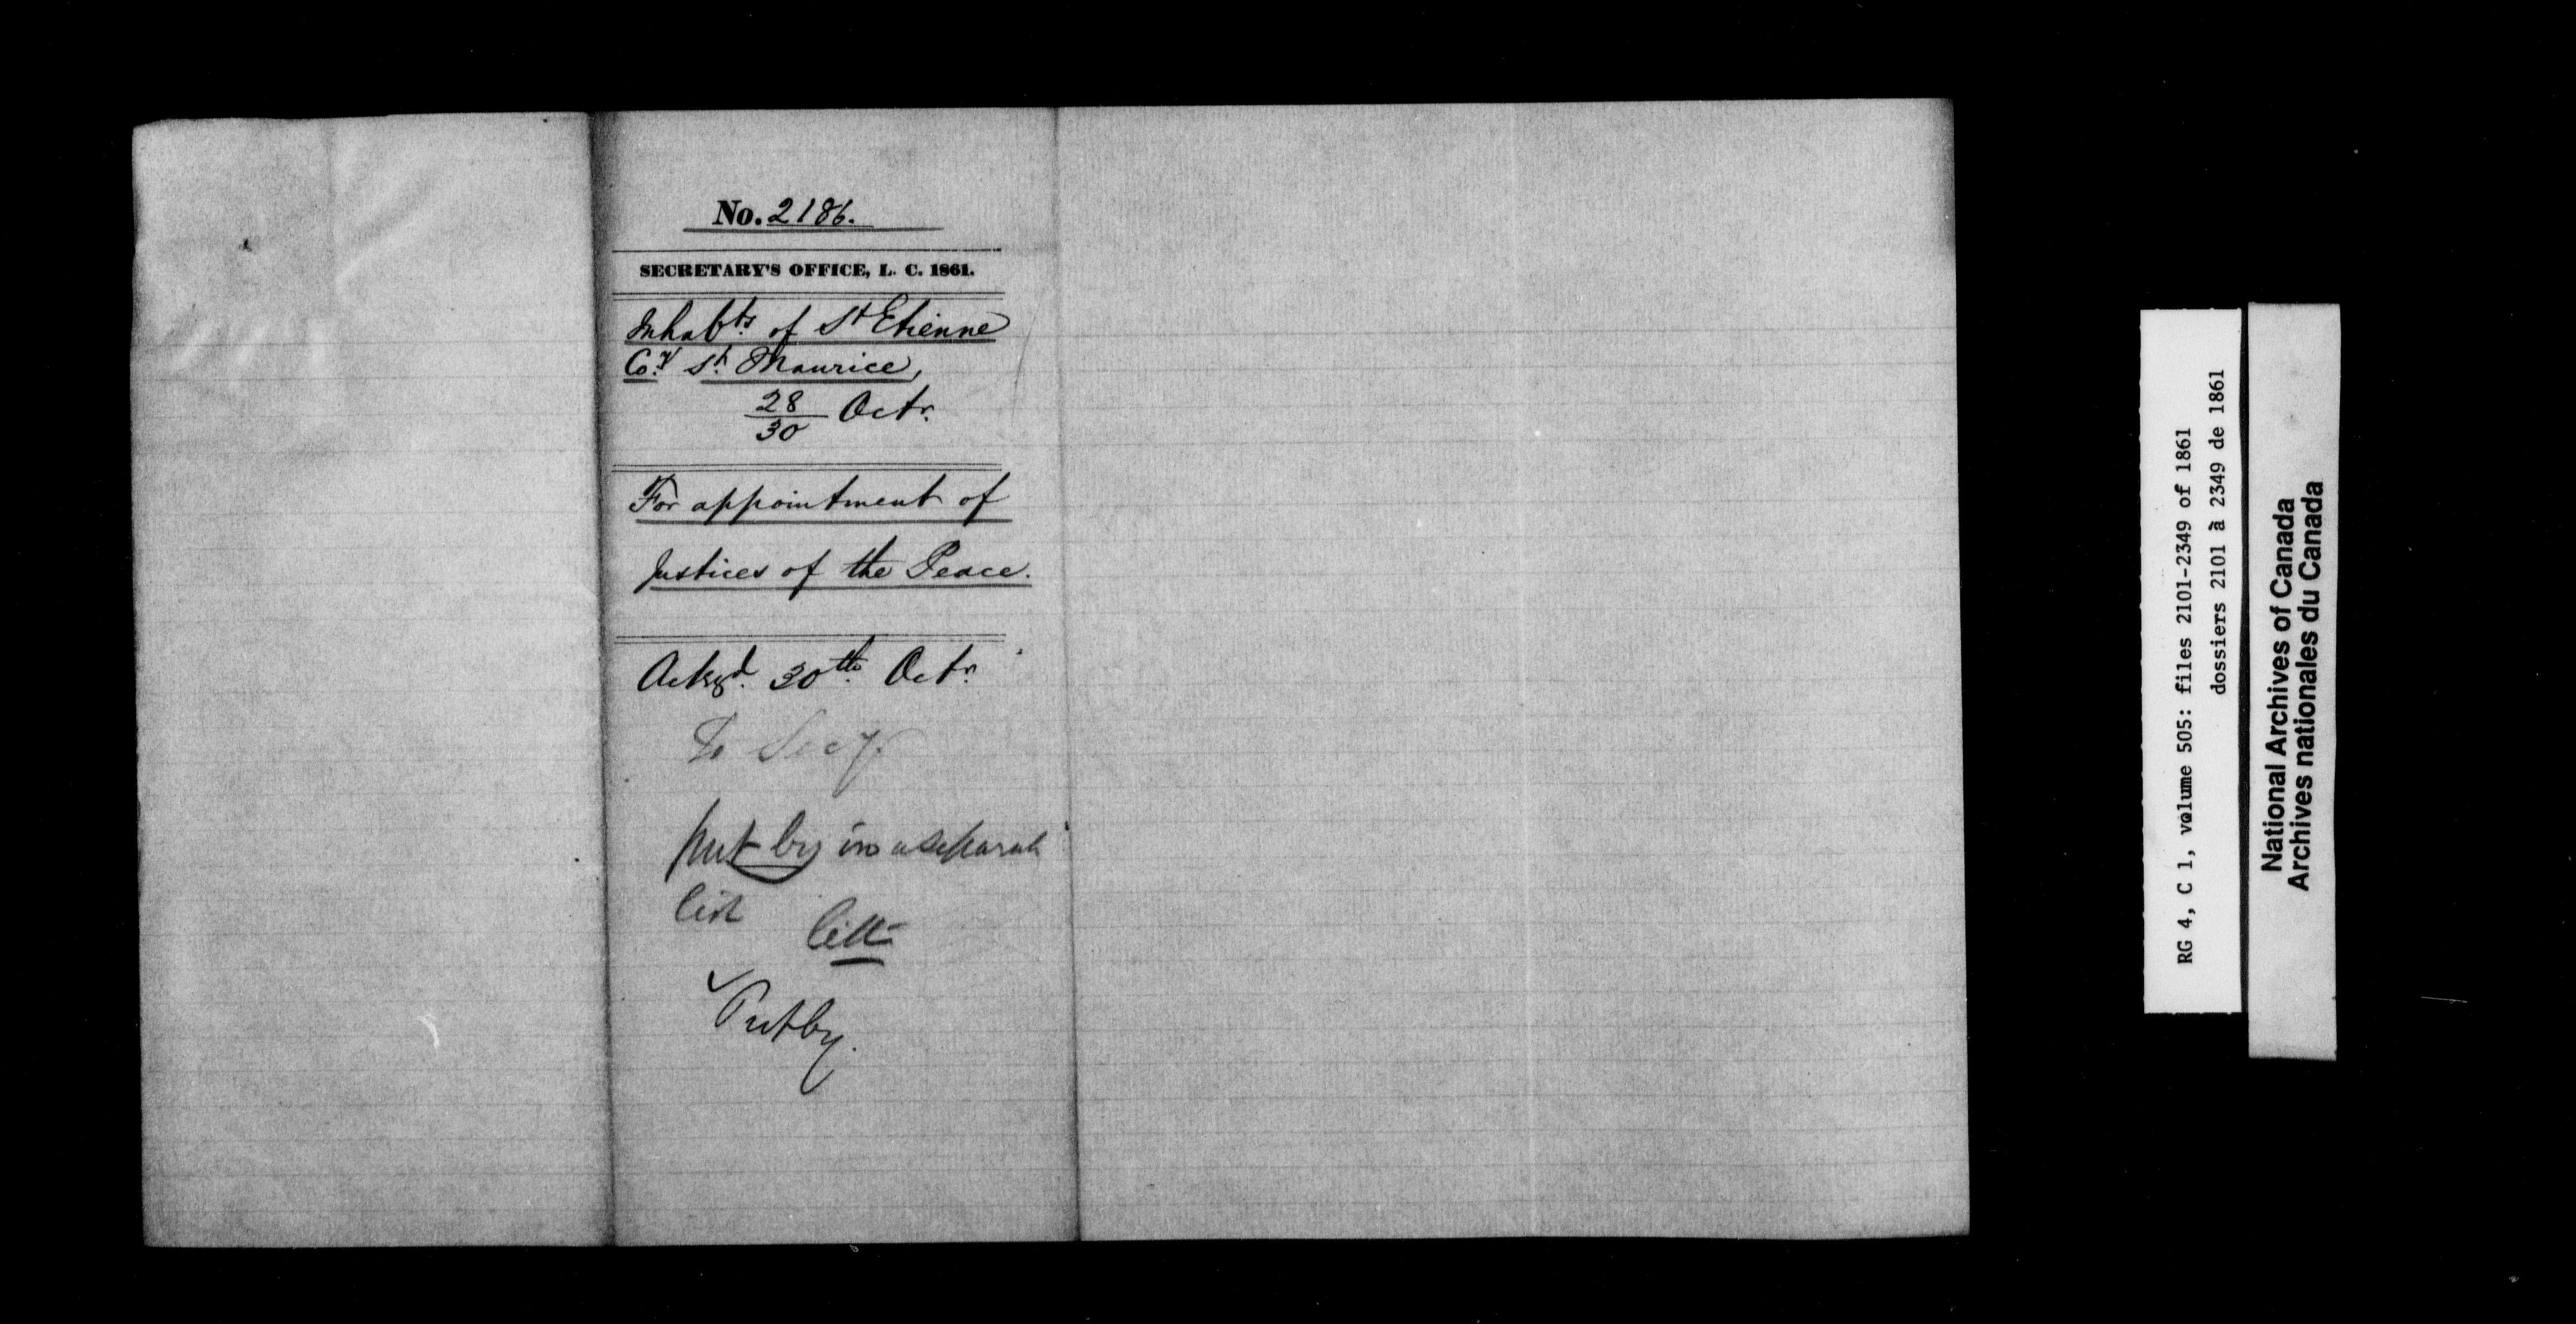 No. 2186.
SECRETARY'S OFFICE, L. C. 1861.
Inhabts of St Etienne
Coy St. Maurice,
28/30 Octr.
For appointment of
Justices of the Peace.
Ackgd. 30th. Octr.
To Secy.
put by in a separate
list
Put by.
RG 4, C 1, volume 505: files 2101-2349 of 1861
dossiers 2101 à 2349 de 1861
National Archives of Canada
Archives nationales du Canada